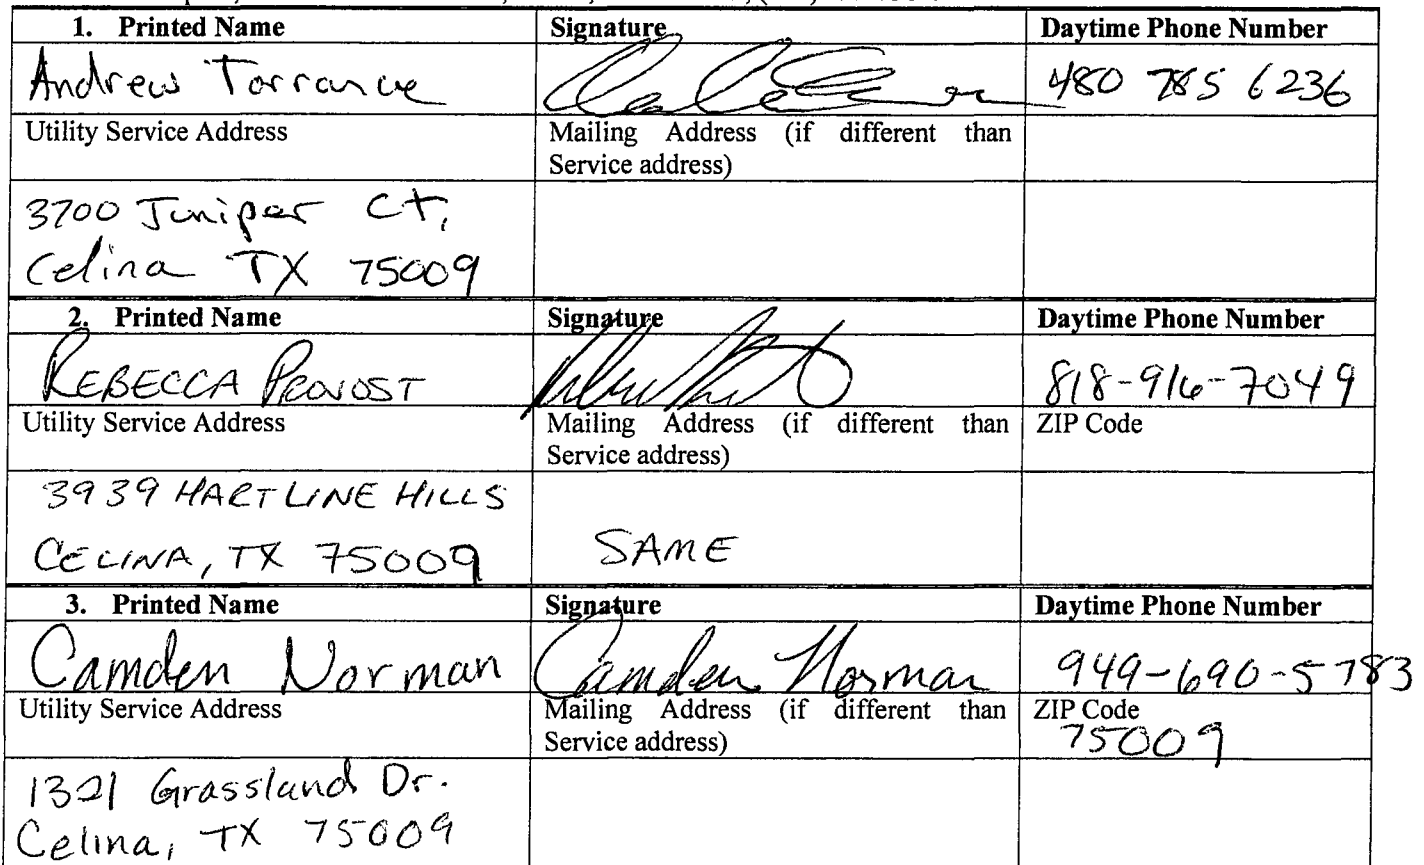 1. Printed Name Signature Daytime Phone Number
Andrew Torrance 480 785 6236
Utility Service Address Mailing Address (if different than
Service address)
3700 Juniper Ct,
Celina TX 75009
2. Printed Name Signature Daytime Phone Number
REBECCA PROVOST 818-916-7049
Utility Service Address Mailing Address (if different than ZIP Code
Service address)
3939 HARTLINE HILLS
CELINA, TX 75009 SAME
3. Printed Name Signature Daytime Phone Number
Camden Norman Camden Norman 949-690-5783
Utility Service Address Mailing Address (if different than ZIP Code
Service address) 75009
1321 Grassland Dr.
Celina, TX 75009